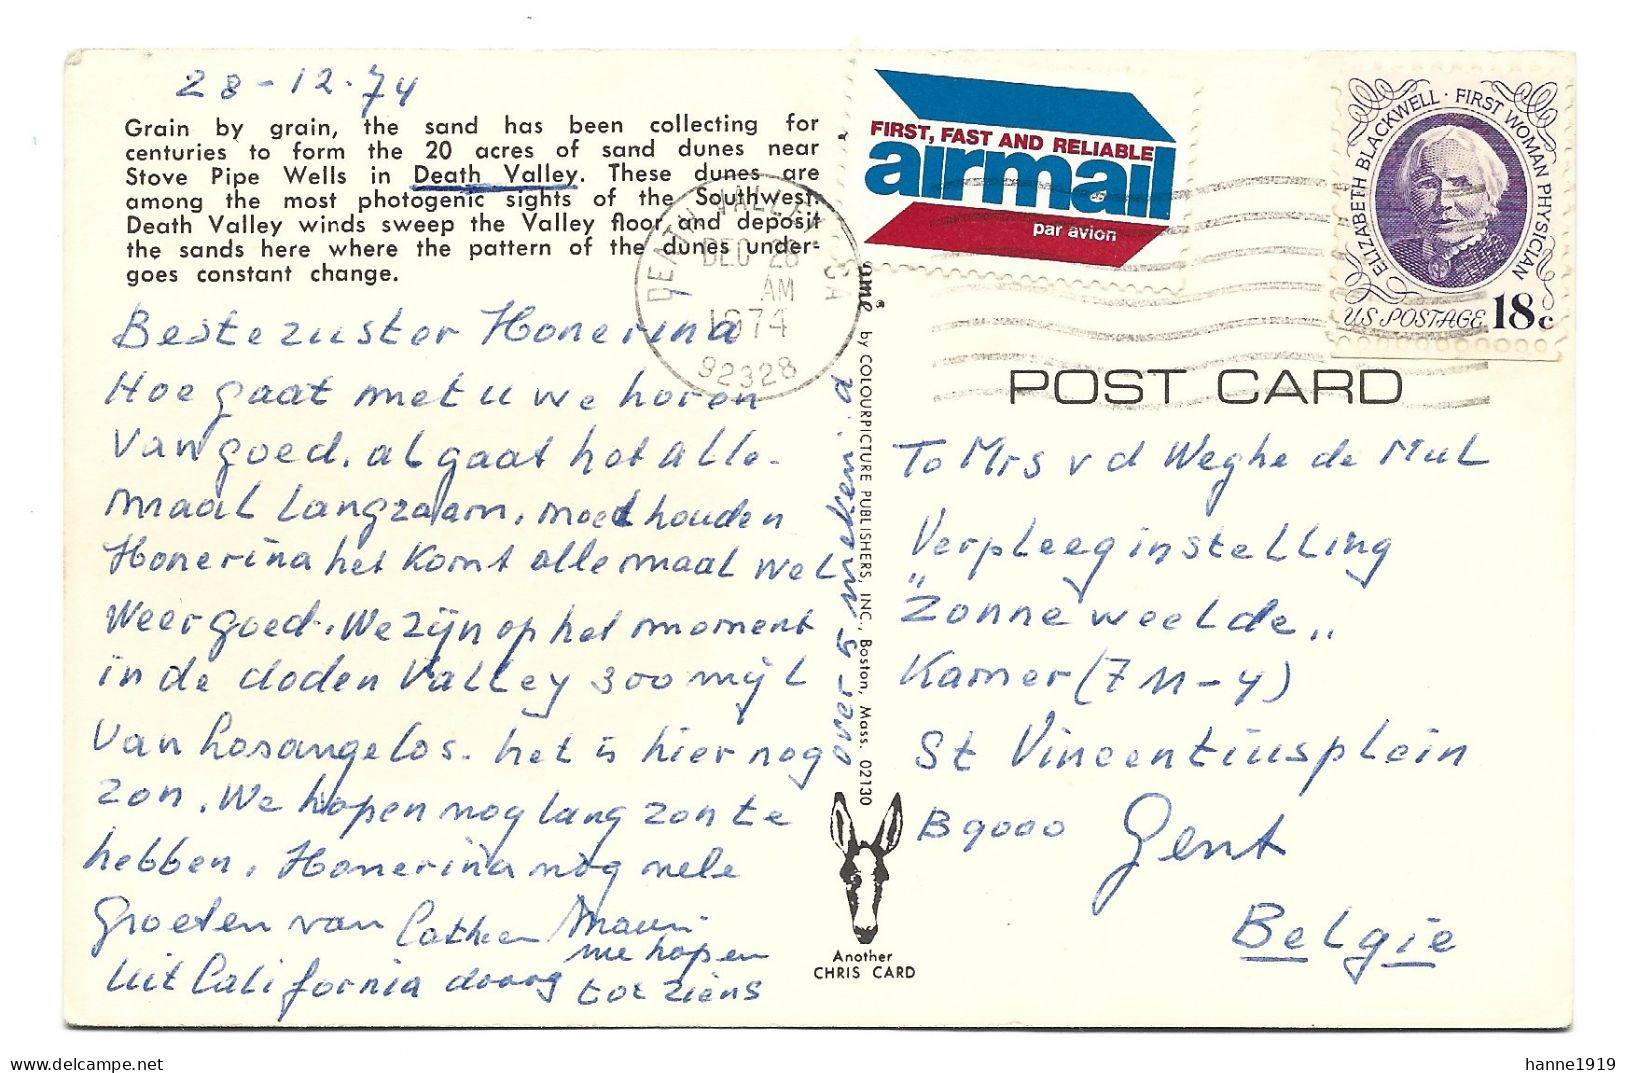 28-12-74
Grain by grain, the sand has been collecting for
centuries to form the 20 acres of sand dunes near
Stove Pipe Wells in Death Valley. These dunes are
among the most photogenic sights of the Southwest.
Death Valley winds sweep the Valley floor and deposit
the sands here where the pattern of the dunes under-
goes constant change.
Beste zuster Honerina
Hoe gaat met u we horen
van goed. al gaat het alle-
maal langzaam, moed houden
Honerina het komt allemaal wel
weer goed. We zijn op het moment
in de doden Valley 300 mijl
van Losangelos. het is hier nog
zon. We hopen nog lang zon te
hebben. Honerina nog vele
Groeten van
uit California
we hopen
tot ziens
DEATH VALLEY
DEC 28
AM
1974
92328
by COLOURPICTURE PUBLISHERS, INC., Boston, Mass. 02130
Another
CHRIS CARD
FIRST, FAST AND RELIABLE
airmail
par avion
ELIZABETH BLACKWELL · FIRST WOMAN PHYSICIAN
US POSTAGE 18c
POST CARD
To Mrs v d Weghe de Mul
Verpleeginstelling
"Zonneweelde"
Kamer (7 M-4)
St Vincentiusplein
B 9000 Gent
Belgie
hanne1919